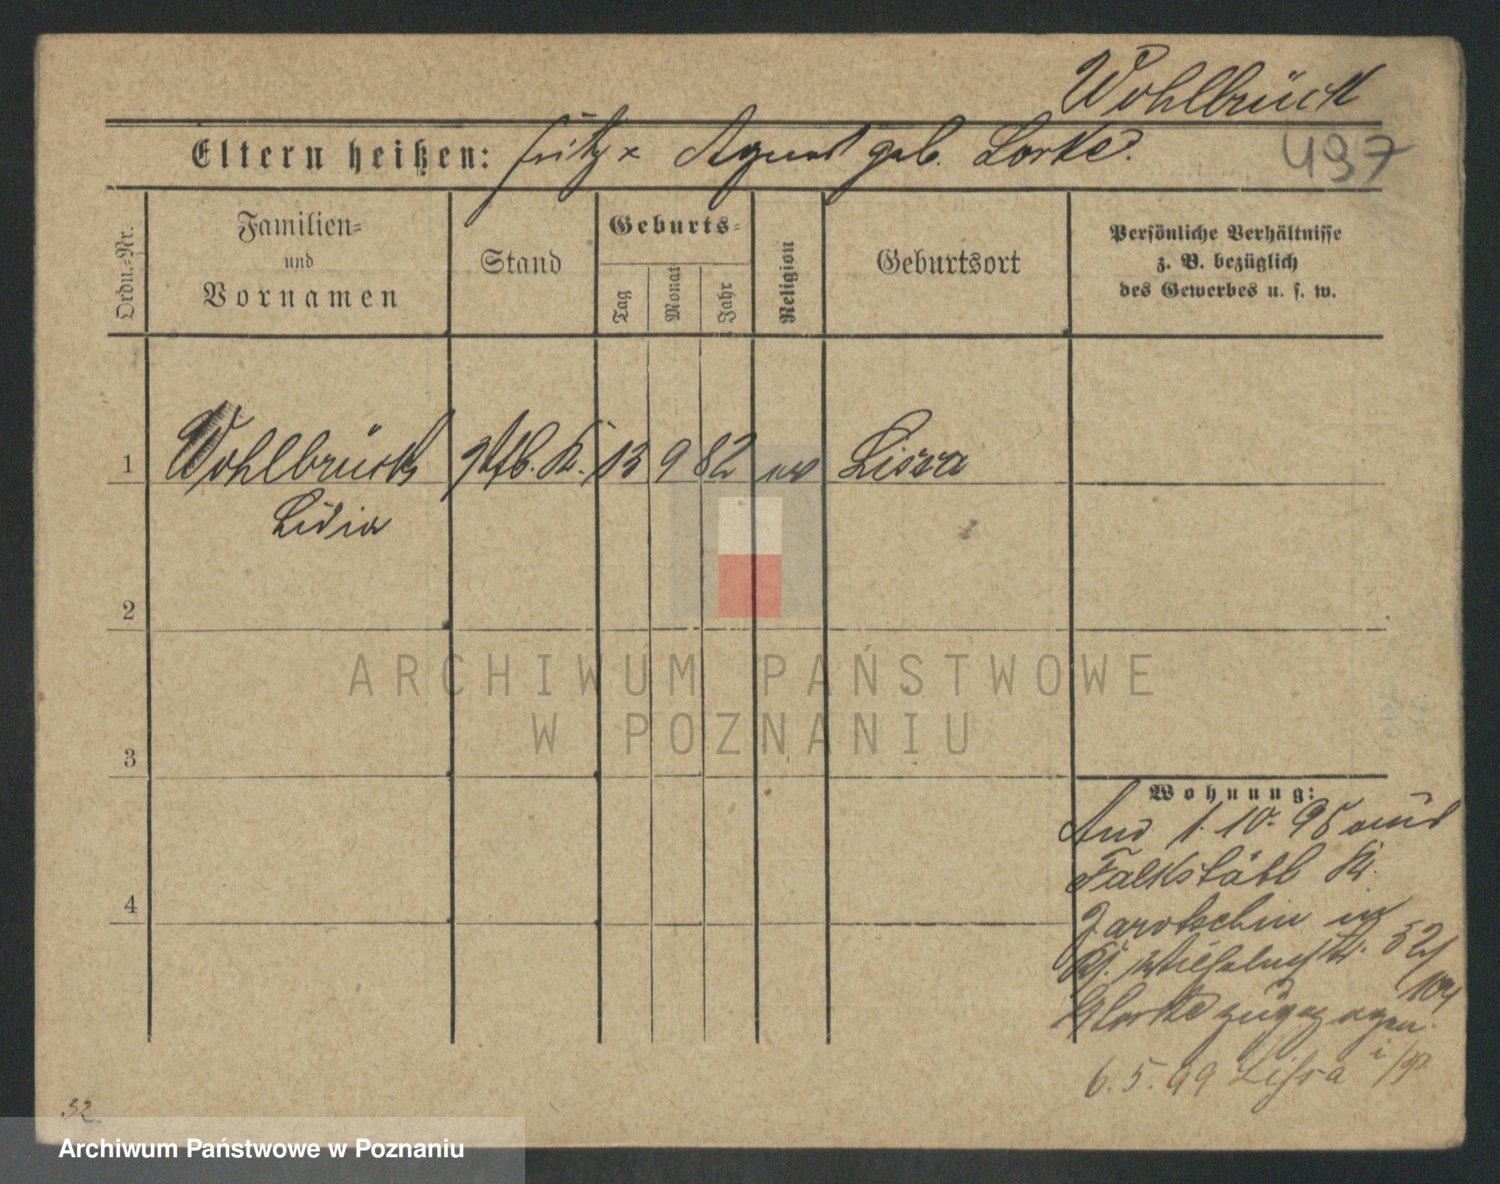 Wohlbrück
Eltern heißen: Fritz x Agnes geb. Lorke.
497
Ordn.-Nr.
Familien-
und
Vornamen
Stand
Geburts-
Tag
Monat
Jahr
Religion
Geburtsort
Persönliche Verhältnisse
z. B. bezüglich
des Gewerbes u. s. w.
1 Wohlbrück 13 9 82 ev Lissa
Lidia
2
ARCHIWUM PAŃSTWOWE
W POZNANIU
3
Wohnung:
Am 1. 10. 95 aus
Falkstätt Kr.
Jarotschin in
52/
104
Lorke zugezogen.
6. 5. 99 Lissa i/P
4
32.
Archiwum Państwowe w Poznaniu